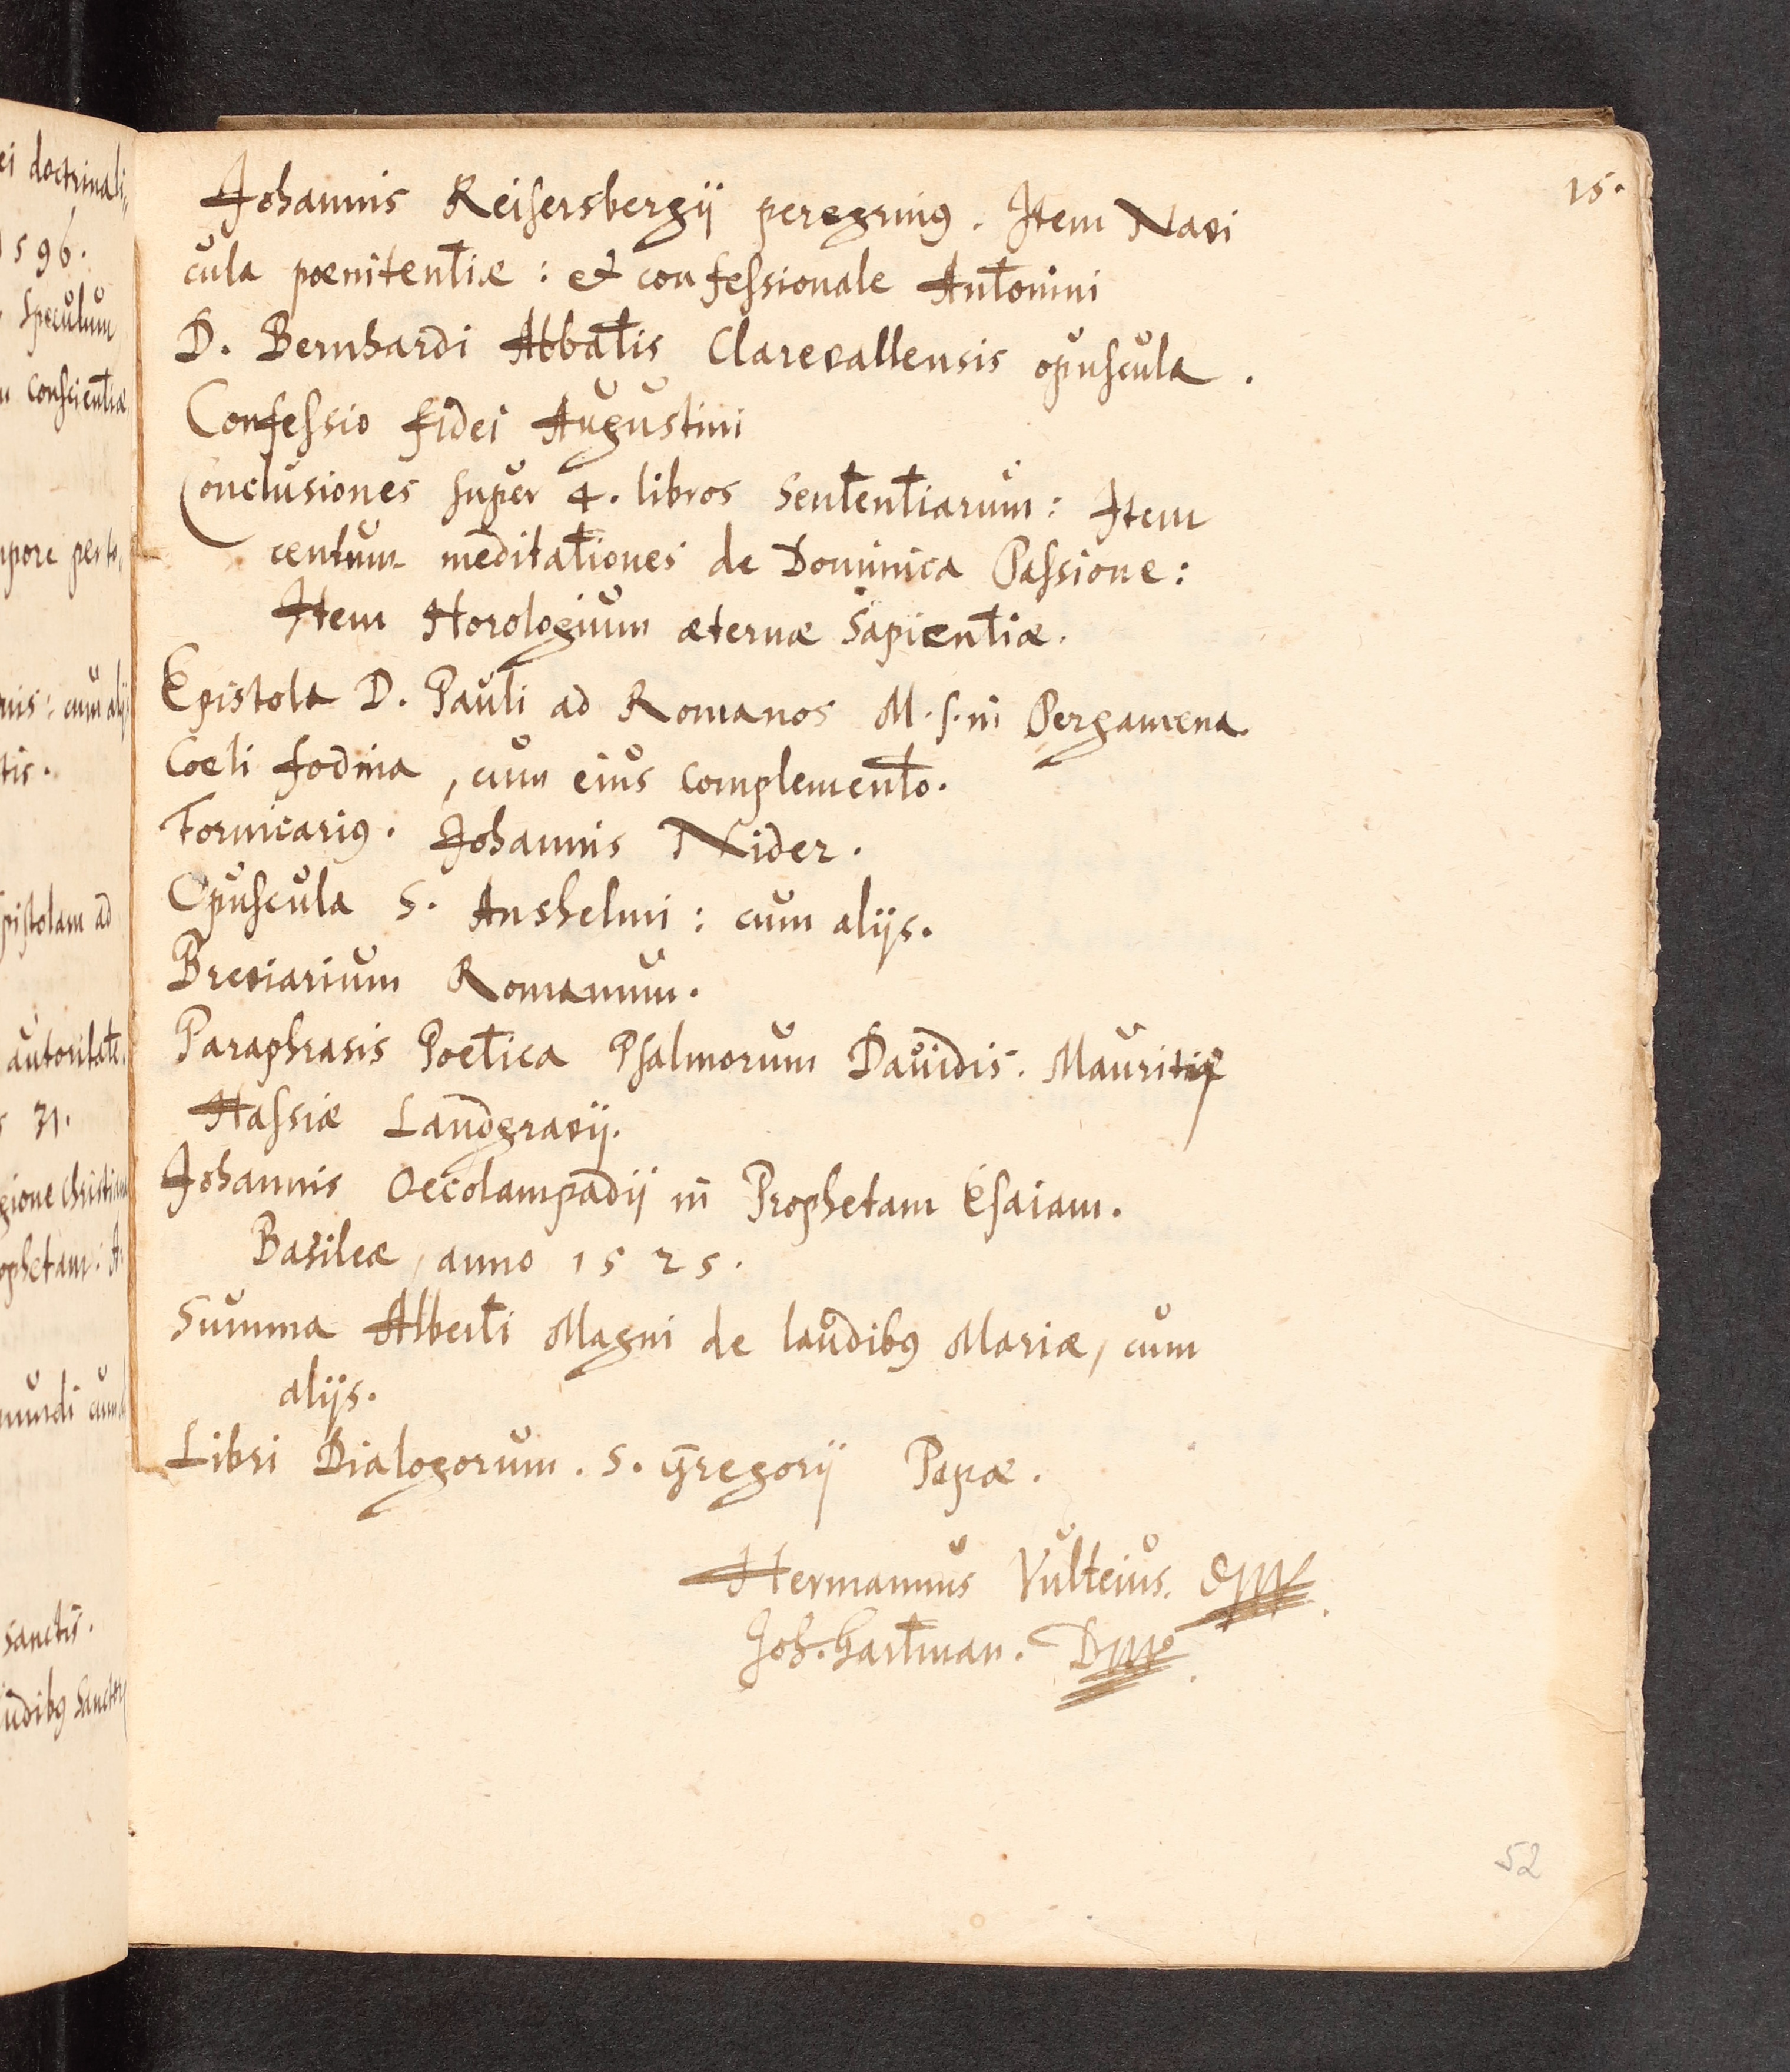 15.
Johannis Keisersbergij peregrinꝰ. Item Navi
cula pœnitentiæ: et confessionale Antonini
D. Bernhardi Abbatis Clarevallensis opuscula.
Confessio fidei Augustini
Conclusiones super 4. libros Sententiarum: Item
centum meditationes de Dominica Passione:
Item Horologium æternæ Sapientiæ.
Epistola D. Pauli ad Romanos M.s. in Pergamena.
Coeli fodina, cum eius complemento.
Formicariꝰ. Johannis Nider.
Opuscula S. Anshelmi: cum alijs.
Breviarium Romanum.
Paraphrasis Poetica Psalmorum Davidis. Mauritij
Hassiæ Landgravij.
Johannis Oecolampadij in Prophetam Esaiam.
Basileæ, anno 1525.
Summa Alberti Magni de laudibꝰ Mariæ, cum
alijs.
Libri Dialogorum. S. Gregorij Papæ.
Hermannus Vulteius.
Joh. Hartman.
52
ei doctrinali
1596.
Speculum
conscientiæ
mpore
nis: cum alijs
tis.
pistolam ad
autoritate.
31.
gione Christiana
ophetam. A.
mundi cum
sanctis.
udibꝰ Sanctorum